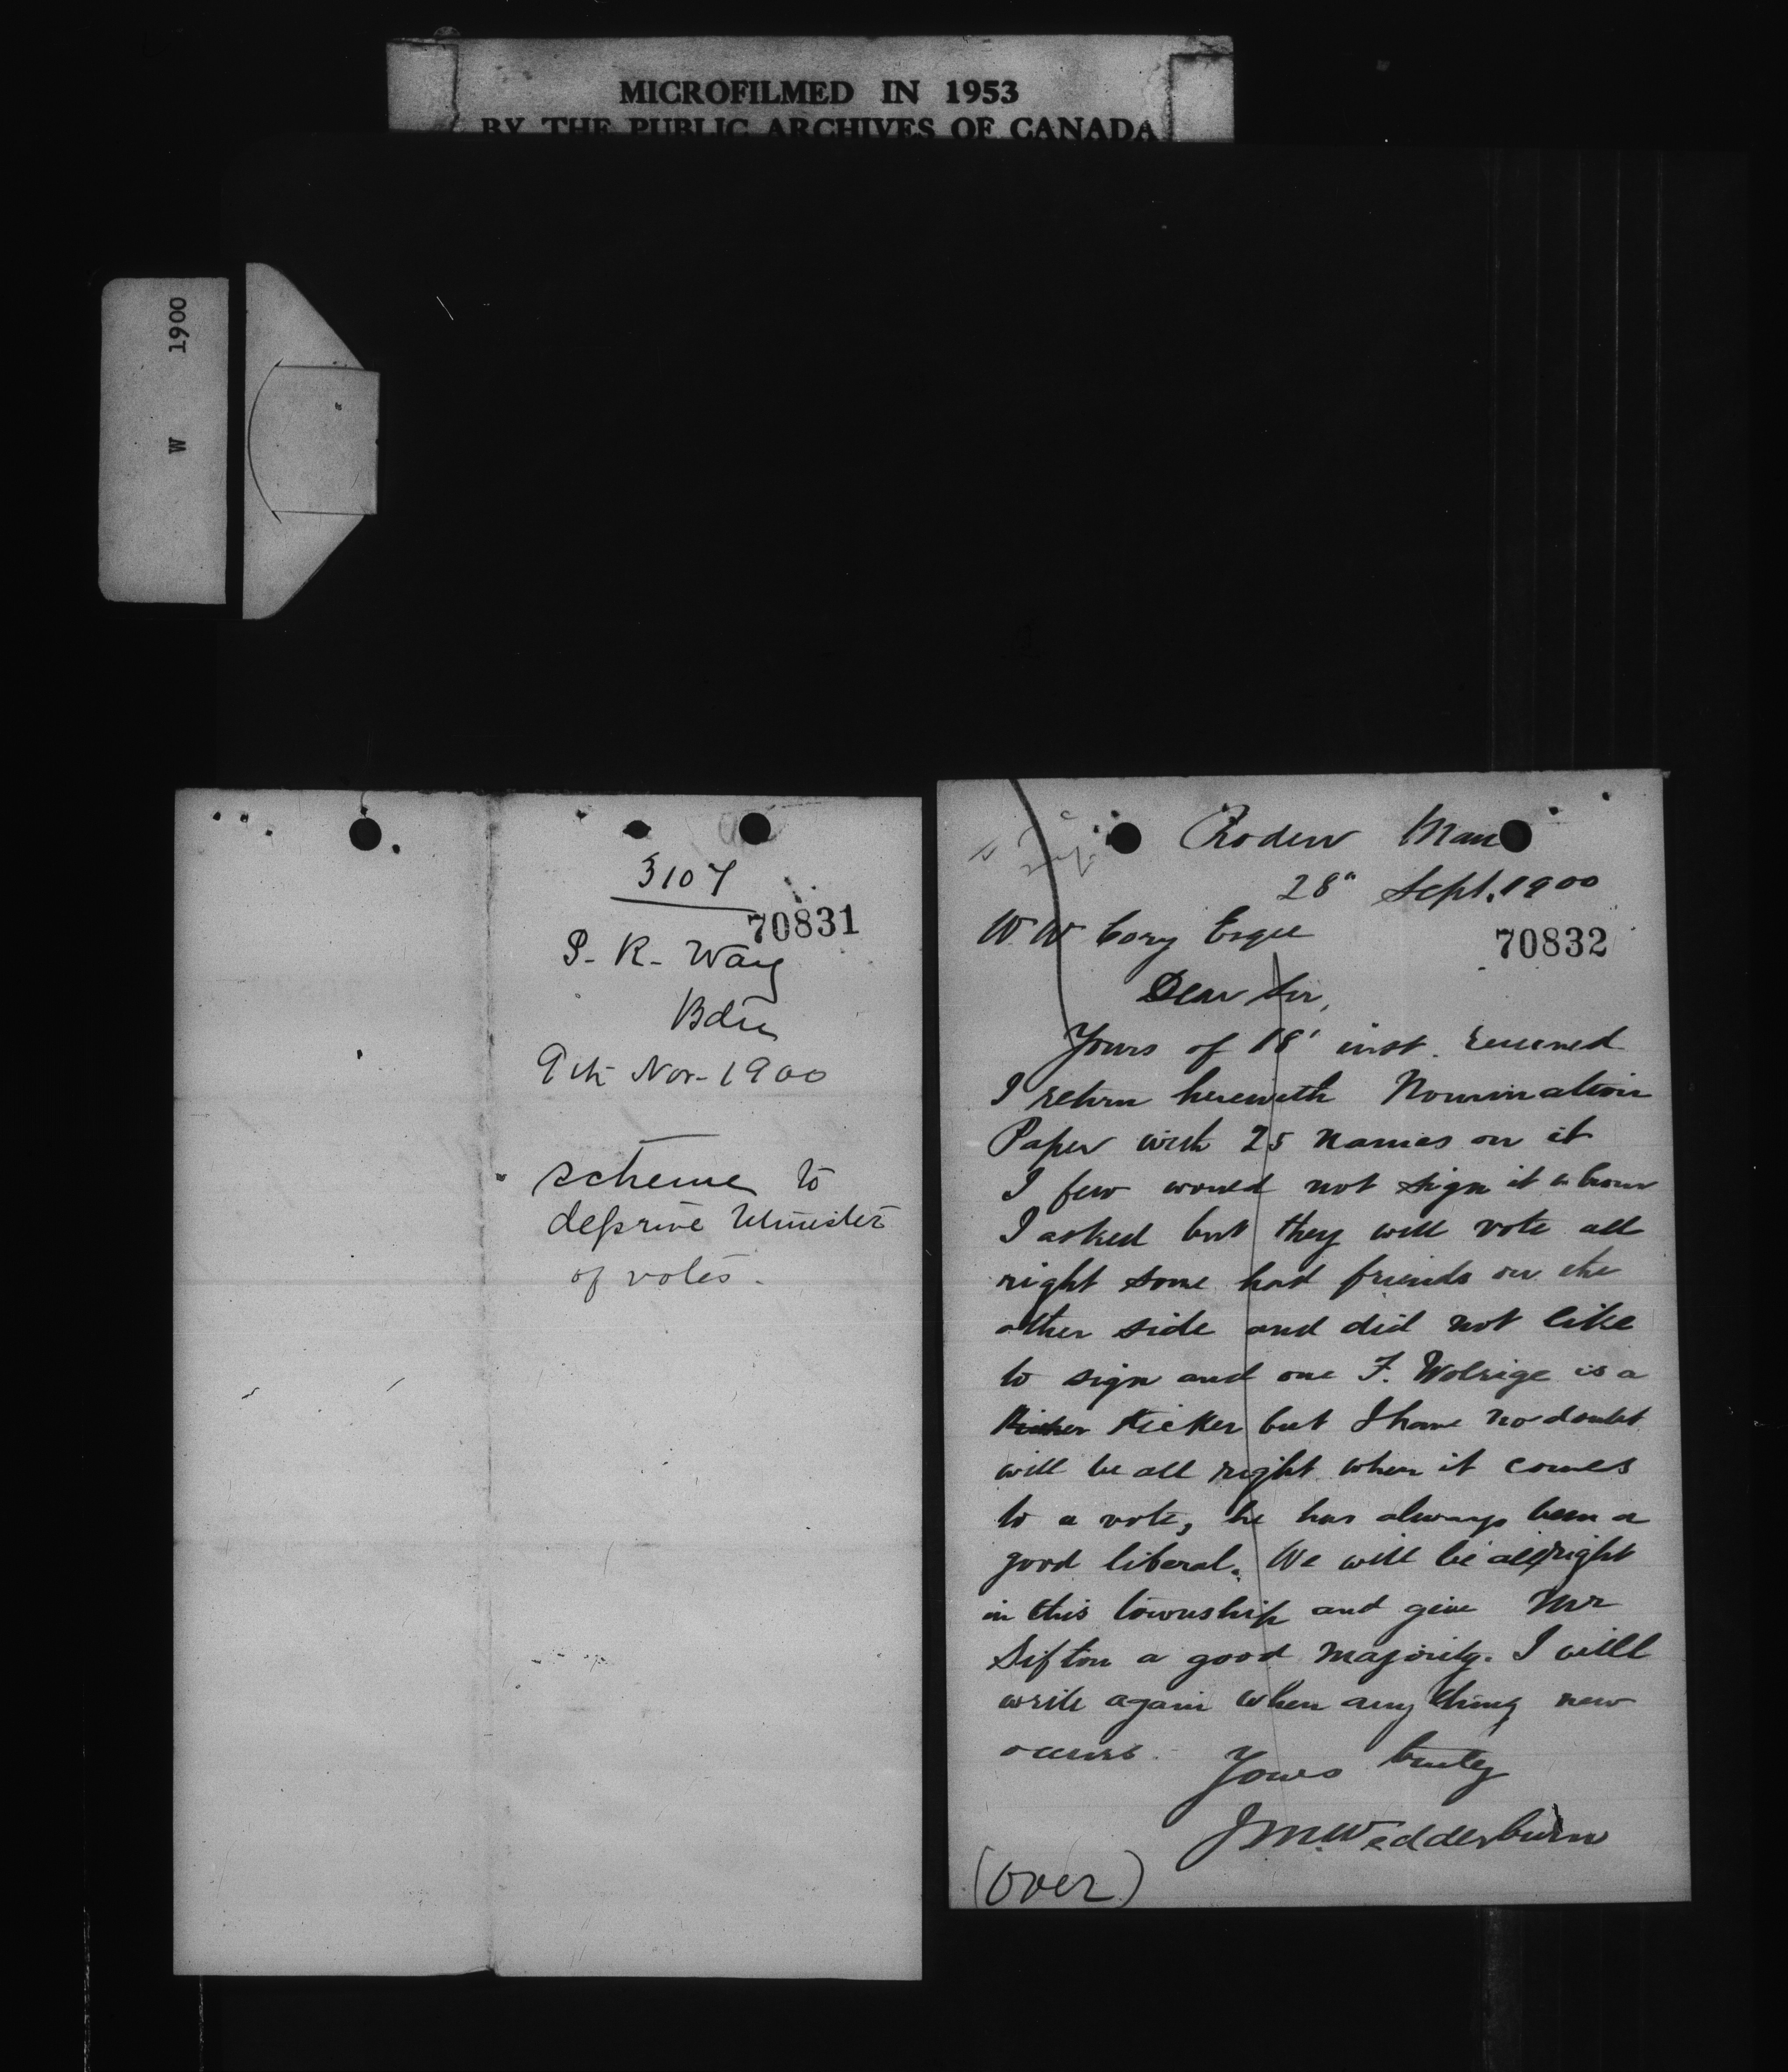 MICROFILMED IN 1953
BY THE PUBLIC ARCHIVES OF CANADA
W 1900
3107
70831
P. R. Way
Bdn
9th Nov. 1900
scheme to
deprive Minister
of votes.
Roden Man
28" Sept. 1900
W W Cory Esqre
70832
Dear Sir,
Yours of 18' inst. received
I return herewith Nomination
Paper with 25 names on it
I few would not sign it whom
I asked but they will vote all
right some had friends on the
other side and did not like
to sign and one F. Wolrige is a
Kicker but I have no doubt
will be all right when it comes
to a vote, he has always been a
good liberal. We will be all right
in this township and give Mr
Sifton a good majority. I will
write again when any thing new
occurs.
Yours truly
J. M. Wedderburn
(Over)